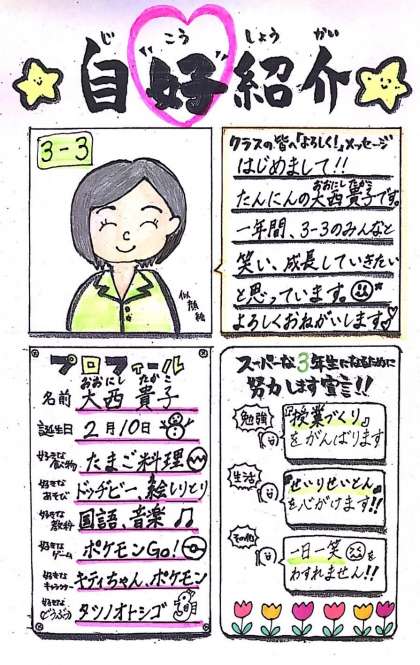 じ こう しょう かい
自"好"紹介
3-3
似顔絵
クラスの皆へ「よろしく!」メッセージ
はじめまして!!
おおにし たかこ
たんにんの大西貴子です。
一年間、3-3のみんなと
笑い、成長していきたい
と思っています。
よろしくおねがいします
プロフィール
おおにし たかこ
名前 大西 貴子
誕生日 2月10日
好きな食べ物 たまご料理
好きなあそび ドッヂビー、絵しりとり
好きな教科 国語、音楽
好きなゲーム ポケモンGo!
好きなキャラクター キティちゃん、ポケモン
好きなどうぶつ タツノオトシゴ
スーパーな3年生になるために
努力します宣言!!
勉強
『授業づくり』
をがんばります
生活
『せいりせいとん』
を心がけます!!
その他
一日一笑を
わすれません!!